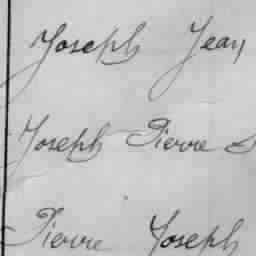 Joseph Jean
Joseph Pierre
Pierre Joseph